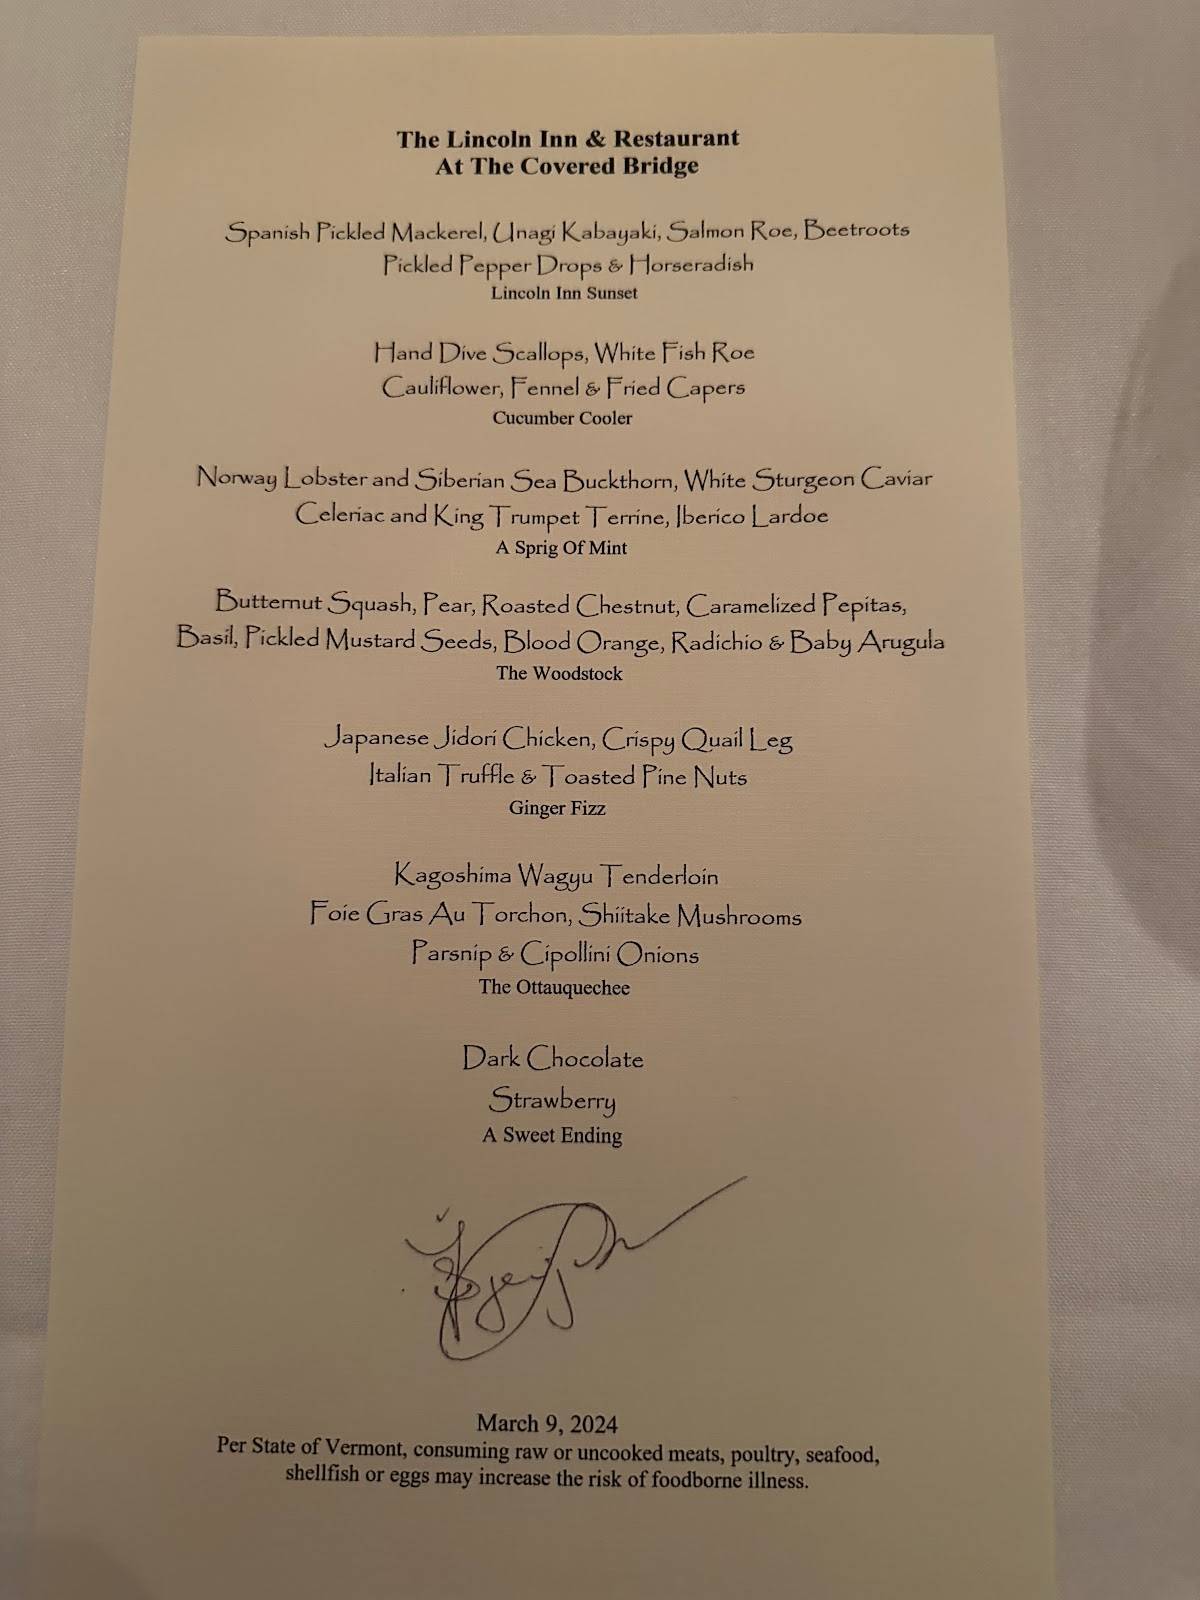 The Lincoln Inn & Restaurant
At The Covered Bridge
Spanish Pickled Mackerel, Unagi Kabayaki, Salmon Roe, Beetroots
Pickled Pepper Drops & Horseradish
Lincoln Inn Sunset
Hand Dive Scallops, White Fish Roe
Cauliflower, Fennel & Fried Capers
Cucumber Cooler
Norway Lobster and Siberian Sea Buckthorn, White Sturgeon Caviar
Celeriac and King Trumpet Terrine, Iberico Lardoe
A Sprig Of Mint
Butternut Squash, Pear, Roasted Chestnut, Caramelized Pepitas,
Basil, Pickled Mustard Seeds, Blood Orange, Radichio & Baby Arugula
The Woodstock
Japanese Jidori Chicken, Crispy Quail Leg
Italian Truffle & Toasted Pine Nuts
Ginger Fizz
Kagoshima Wagyu Tenderloin
Foie Gras Au Torchon, Shiitake Mushrooms
Parsnip & Cipollini Onions
The Ottauquechee
Dark Chocolate
Strawberry
A Sweet Ending
March 9, 2024
Per State of Vermont, consuming raw or uncooked meats, poultry, seafood,
shellfish or eggs may increase the risk of foodborne illness.